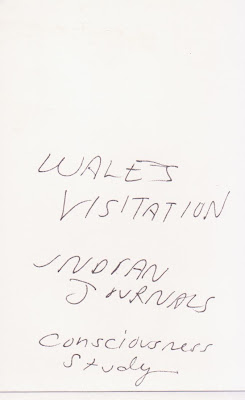 WALES
VISITATION
INDIAN
JOURNALS
Consciousness
Study